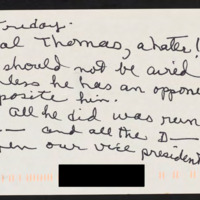 Friday.
al Thomas, a hater!
should not be aired
less he has an oppone
posite him.
all he did was run
— and all the D—
en our vice president